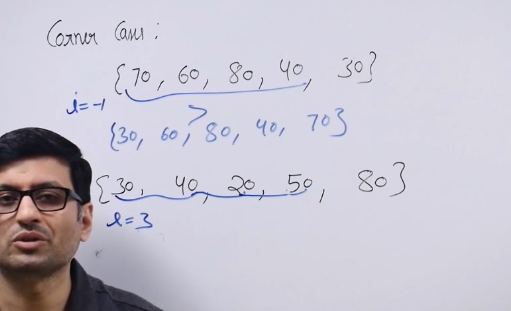 Corner Cases :
{70, 60, 80, 40, 30}
i=-1 >
{30, 60, 80, 40, 70}
{30, 40, 20, 50, 80}
i=3